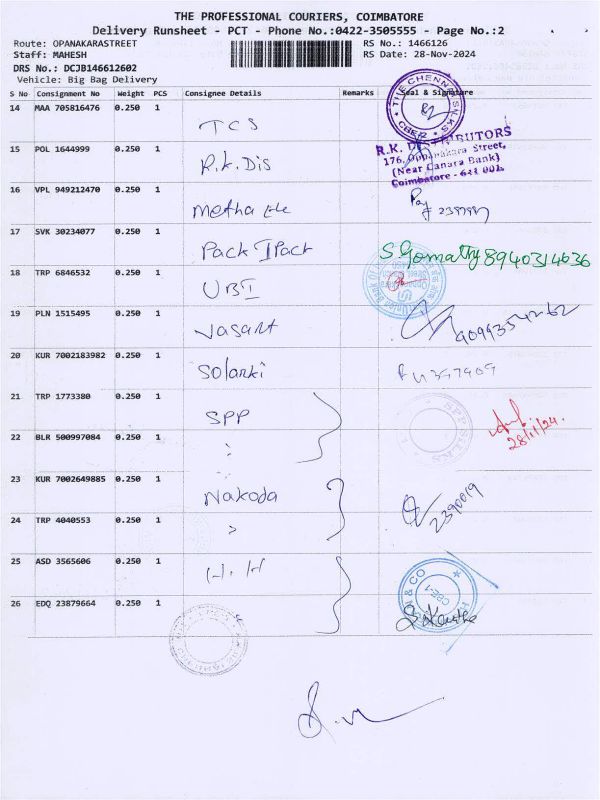 THE PROFESSIONAL COURIERS, COIMBATORE
Delivery Runsheet - PCT - Phone No.:0422-3505555 - Page No.:2
Route: OPANAKARASTREET RS No.: 1466126
Staff: MAHESH RS Date: 28-Nov-2024
DRS No.: DCJB146612602
Vehicle: Big Bag Delivery
S No Consignment No Weight PCS Consignee Details Remarks Seal & Signature
14 MAA 705816476 0.250 1 TCS
THE CHENNAI SILKS CBE
15 POL 1644999 0.250 1 R.K. Dis
R.K. DISTRIBUTORS
176, Oppanakara Street,
(Near Canara Bank)
Coimbatore - 641 001.
16 VPL 949212470 0.250 1 Metha
17 SVK 30234077 0.250 1 Pack I Pack S Gomathy 8940314636
18 TRP 6846532 0.250 1 UBI
19 PLN 1515495 0.250 1 Vasant
20 KUR 7002183982 0.250 1 Solanki
21 TRP 1773380 0.250 1 SPP
SPP SILKS
28/11/24.
22 BLR 500997084 0.250 1
23 KUR 7002649885 0.250 1 Nakoda 2390019
24 TRP 4040553 0.250 1
25 ASD 3565606 0.250 1 H. H
& CO CBE-1
26 EDQ 23879664 0.250 1